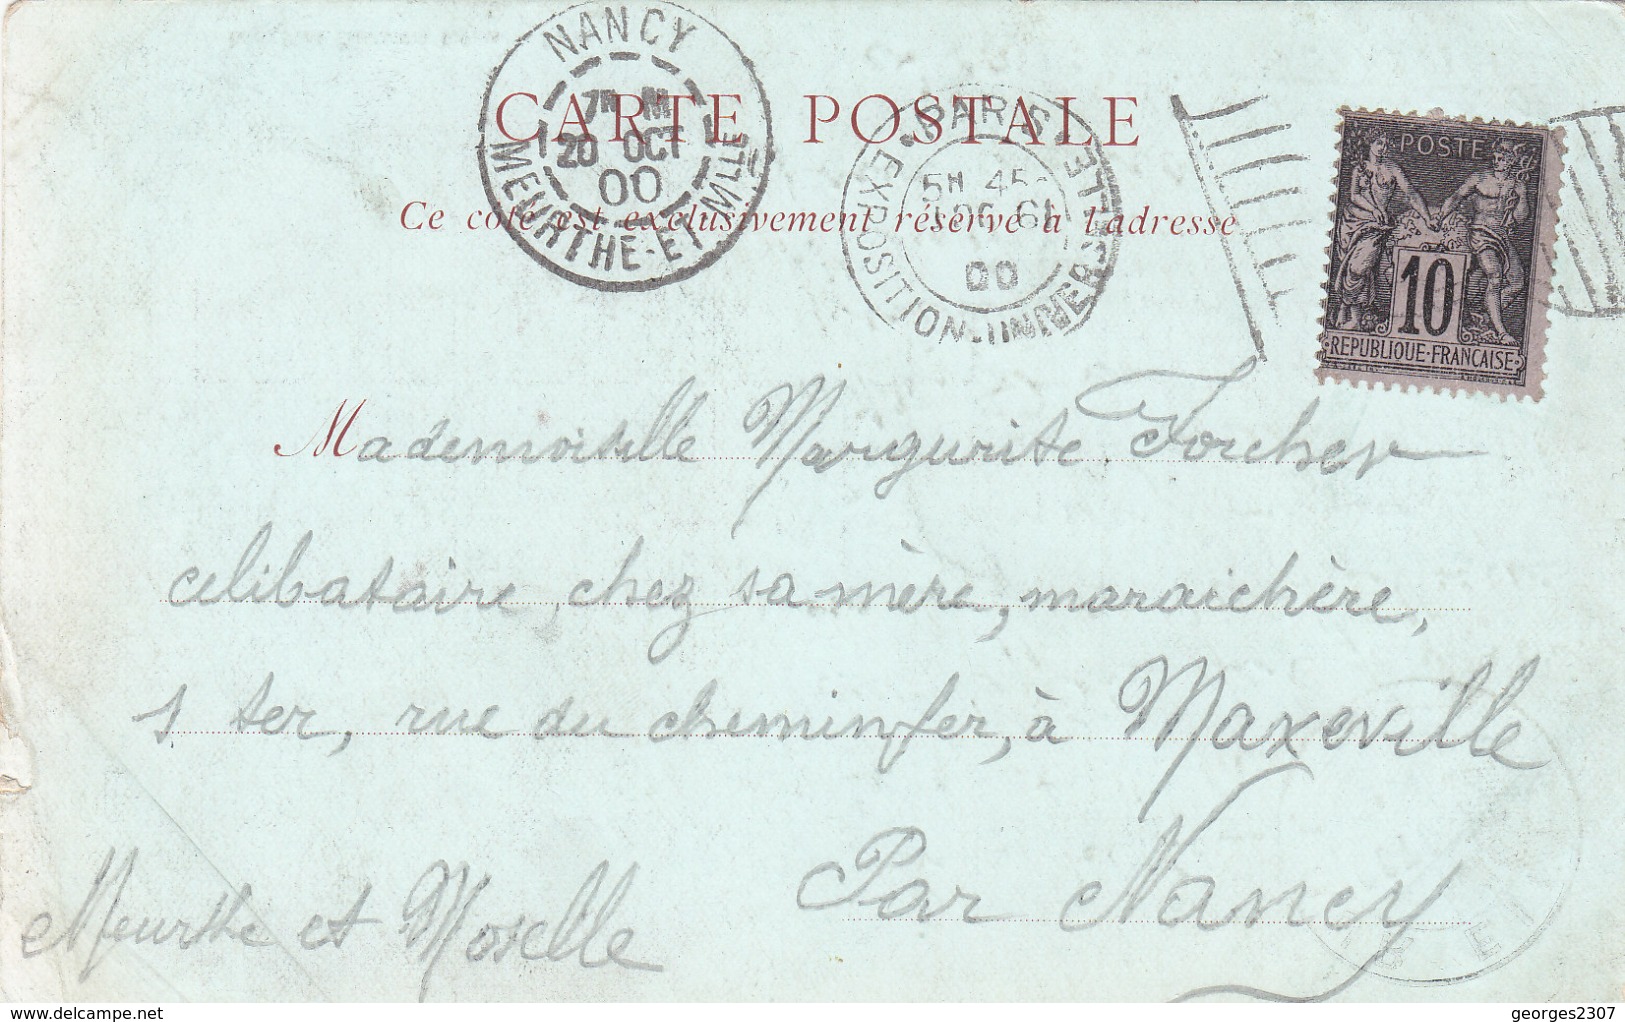 NANCY
7H M
20 OCT
00
MEURTHE-ET-MLLE
CARTE POSTALE
PARIS
5H 45
00
EXPOSITION-UNIVERSELLE
POSTE
10
REPUBLIQUE·FRANCAISE
Ce coté est exclusivement réservé à l'adresse
Mademoiselle Margurite Forcher
celibataire, chez sa mère, maraichère,
1 ter, rue du cheminfer, à Maxeville
Par Nancy
Meurthe et Moselle
delcampe.net
georges2307